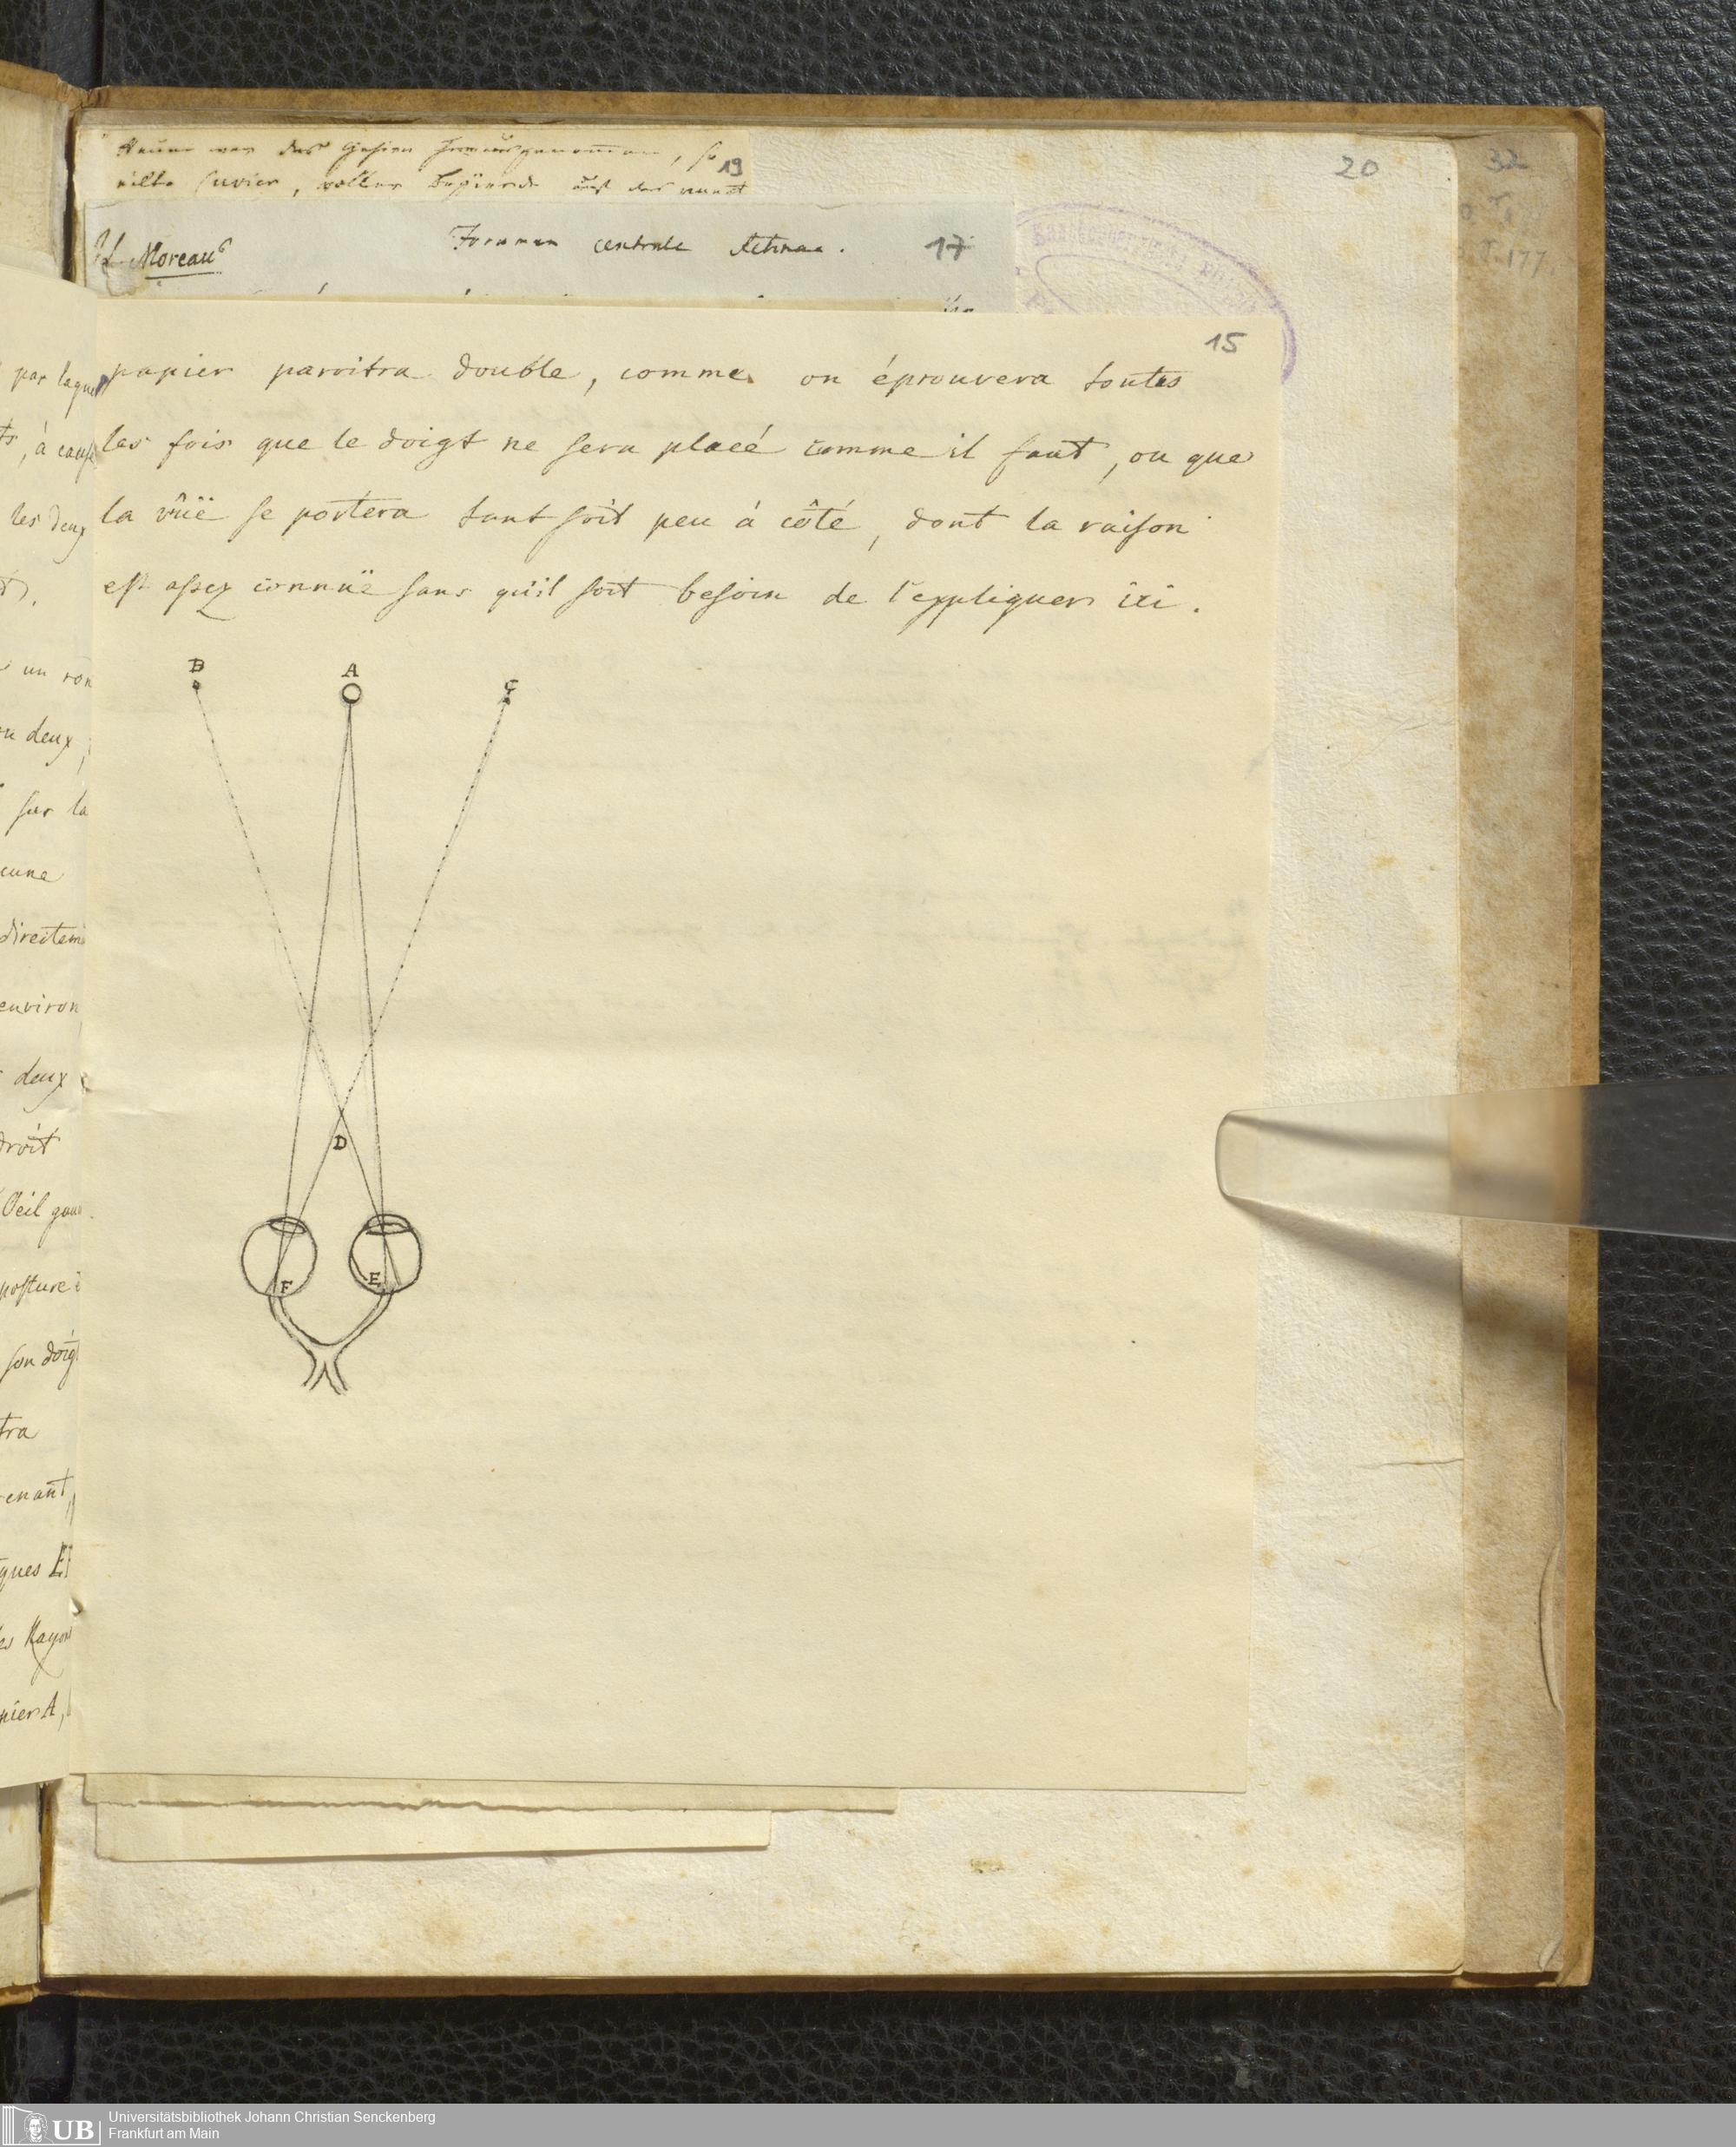 19
20
32
Moreau
Foramen centrale Retinae.
17
15
papier paroitra double, comme on éprouvera toutes
les fois que le doigt ne sera placé comme il faut, ou que
la vûë se portera tant soit peu à côté, dont la raison
est assez connuë sans qu'il soit besoin de l'expliquer ici.
B A C
D
F E
par laque
ts, à cause
les deux
un ron
en deux,
sur la
cune
directem
environ
deux
droit
l'Oeil gau
posture
son doig
tra
enant,
ques E
es Rayons
pier A,
UB
Universitätsbibliothek Johann Christian Senckenberg
Frankfurt am Main